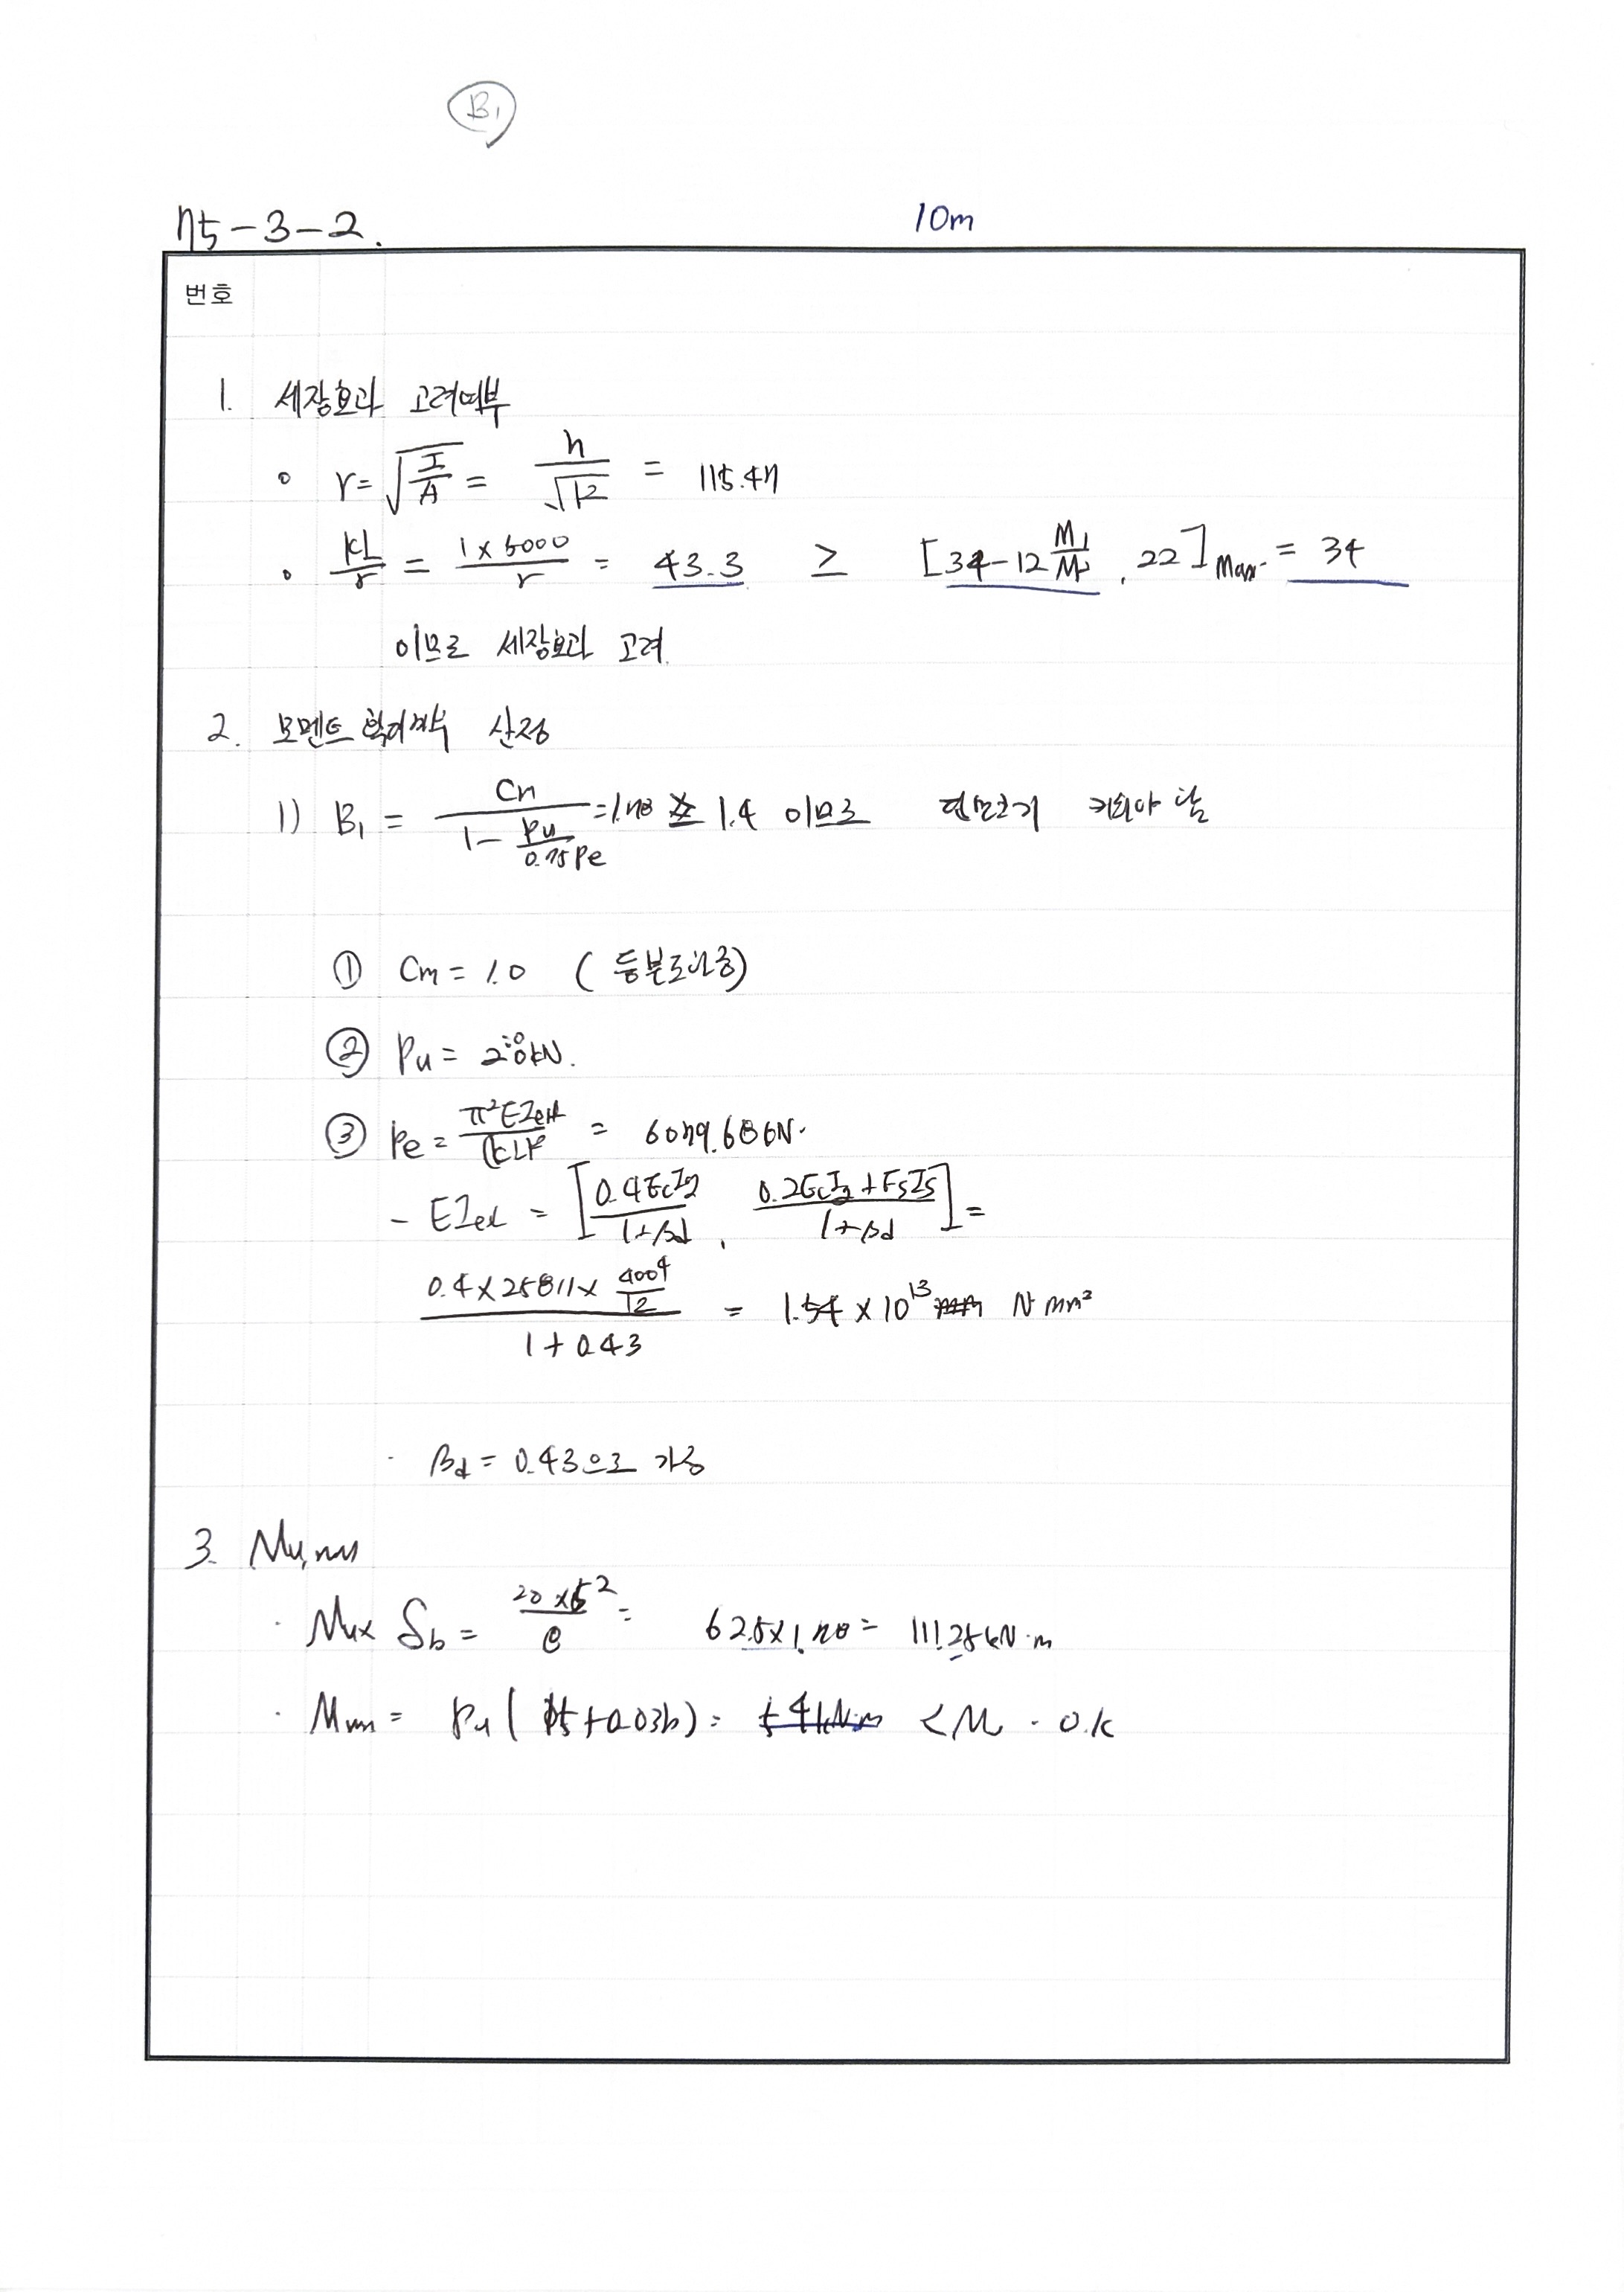 B₁
75-3-2.
10m
번호
1. 세장효과 고려여부
∘ r = √(I/A) = h/√12 = 115.47
∘ kL/r = 1×5000/r = 43.3 ≥ [34-12 M₁/M₂, 22]Max. = 34
이므로 세장효과 고려.
2. 모멘트 확대계수 산정
1) B₁ = Cm/(1 - Pu/0.75Pe) = 1.78 ≰ 1.4 이므로 키워야 함
① Cm = 1.0 (등분포하중)
② Pu =
③ Pe = π²EIeff/(kL)² = 6079.68kN.
- EIeff = [0.4EcIg/(1+βd), (0.2EcIg+EsIs)/(1+βd)] =
(0.4×25811×400⁴/12)/(1+0.43) = 1.54×10¹³ N·mm²
· βd = 0.43으로 가정
3. Mu,min
· Mu×δb = 20×5²/8 = 62.5×1.78 = 111.25kN·m
· Mmin = Pu(15+0.03h) = 54kN·m < M · O.K